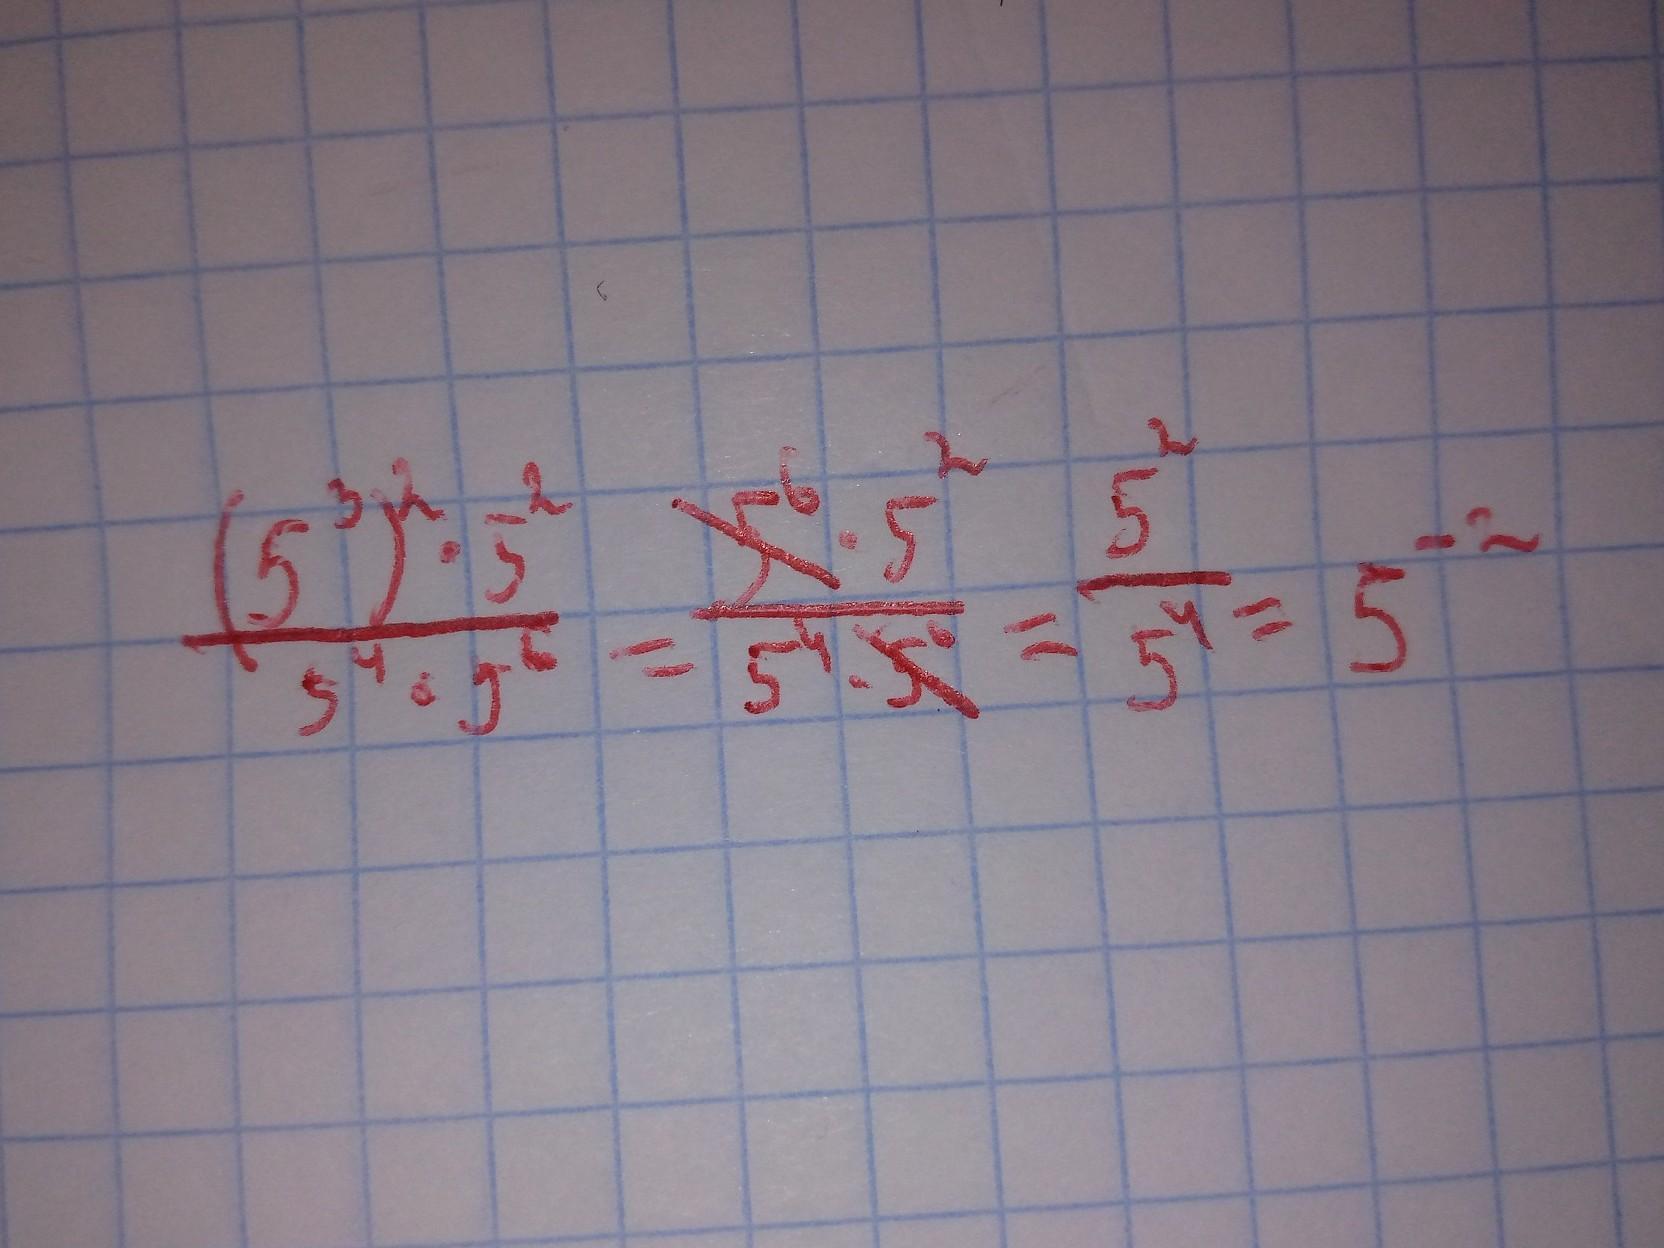 (5³)² · 5² / 5⁴ · 5⁶ = 5⁶ · 5² / 5⁴ · 5⁶ = 5² / 5⁴ = 5⁻²